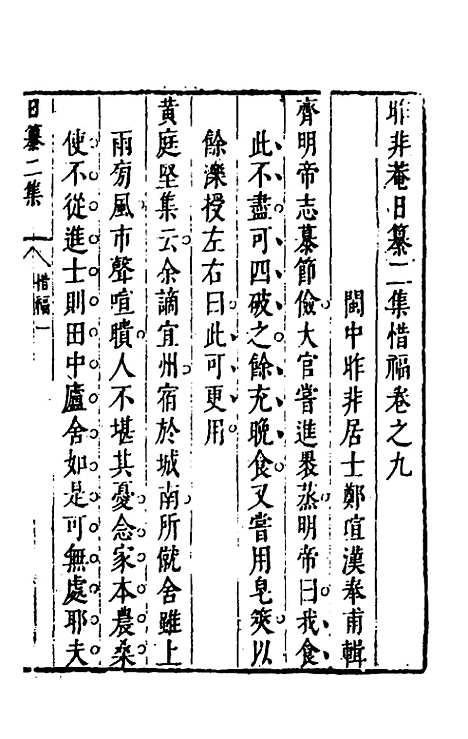 昨非菴日纂二集惜福卷之九
閩中昨非居士鄭瑄漢奉甫輯
齊明帝志慕節儉大官嘗進裹蒸明帝曰我食
此不盡可四破之餘充晚食又嘗用皂筴以
餘濼授左右曰此可更用
黄庭堅集云余謫宜州宿於城南所僦舍雖上
雨旁風市聲喧聵人不堪其憂念家本農桑
使不從進士則田中廬舍如是可無處耶夫
日纂二集
惜福
一